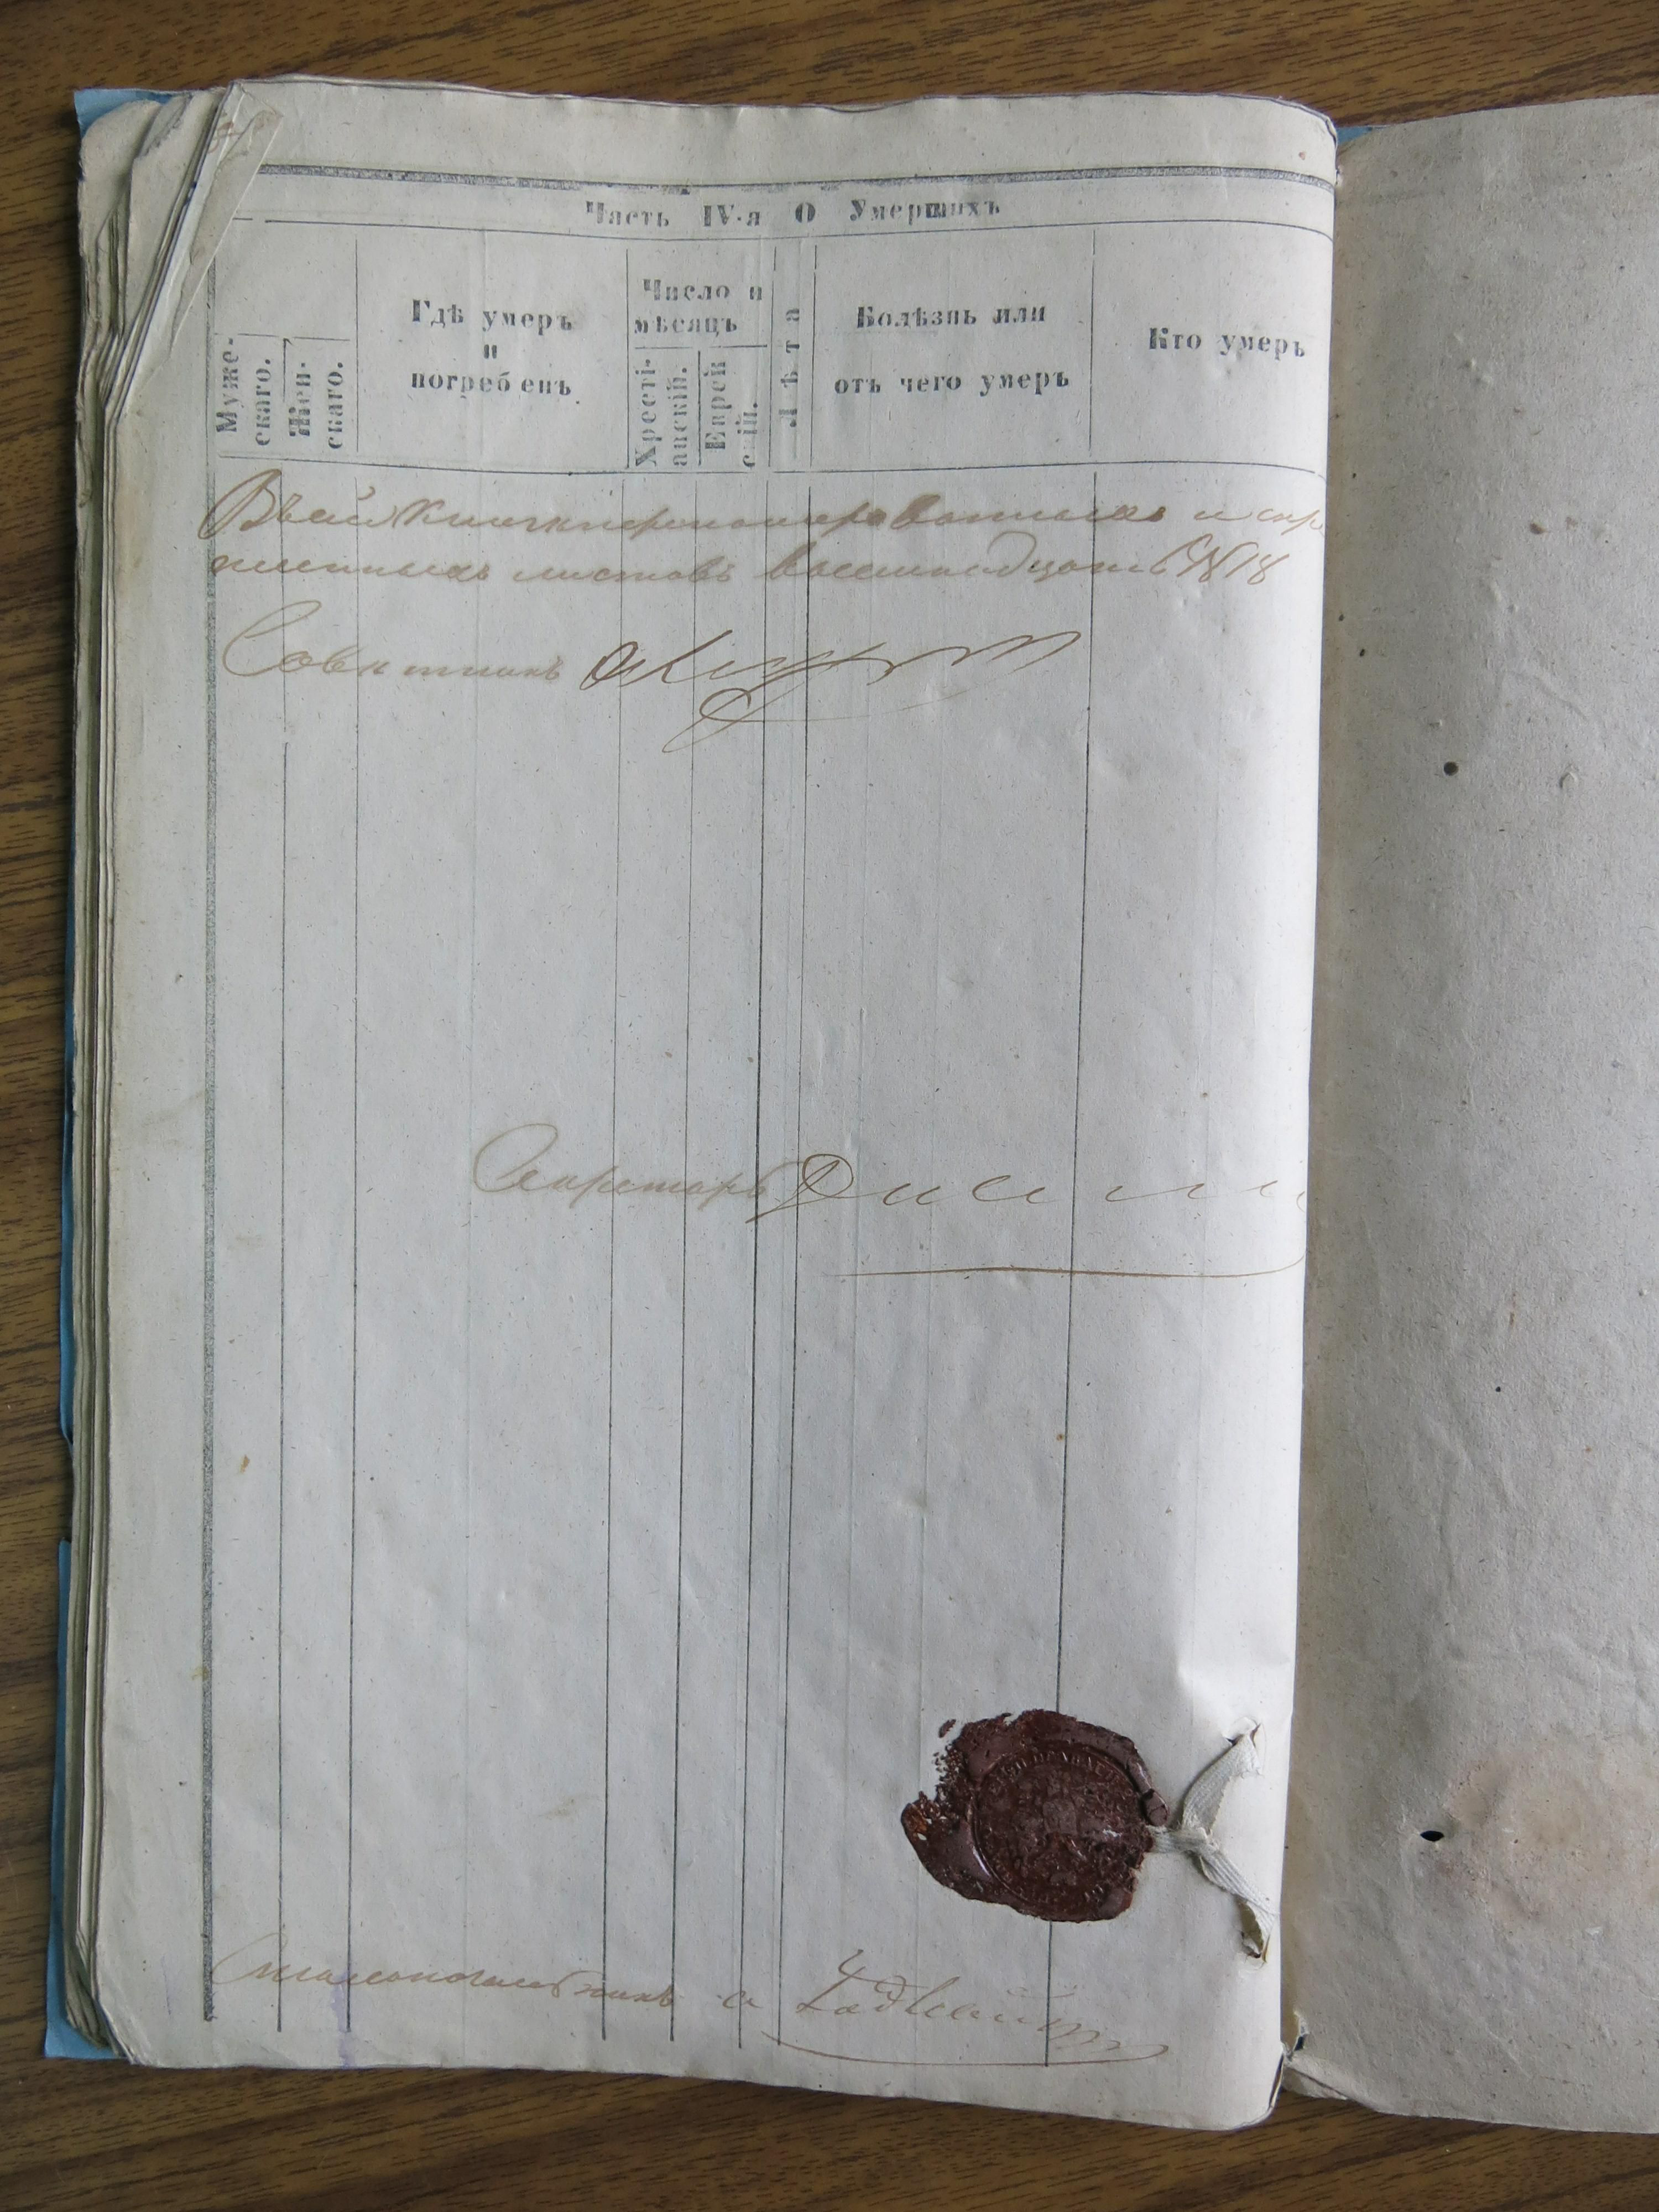 Часть IV-я О Умершихъ
Муже-
скаго.
Жен-
скаго.
Гдѣ умеръ
и
погребенъ
Число и
мѣсяцъ
Хресті-
анскій.
Еврей
с ій.
Лѣта
Болѣзнь или
отъ чего умеръ
Кто умеръ
Въ сей книгѣ пронумерованныхъ и скрѣ
пленныхъ листовъ восемнадцать 18
Совѣтникъ
Секретарь
Столоначальникъ